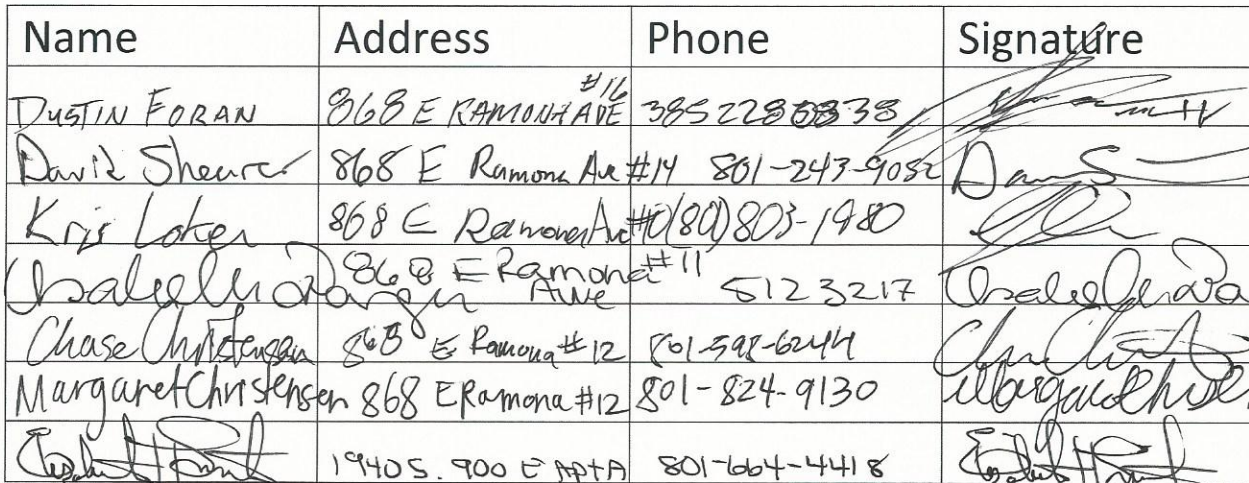 Name Address Phone Signature
DUSTIN FORAN 868 E RAMONA AVE #16 38522838
David Sheurer 868 E Ramona Ave #14 801-243-9052
Kris 868 E Ramona Ave (801)803-1980
868 E Ramona Ave #11 5123217
Chase Christensen 868 E Ramona #12 801-598-6244
Margaret Christensen 868 E Ramona #12 801-824-9130
1940 S. 900 E APT A 801-664-4418